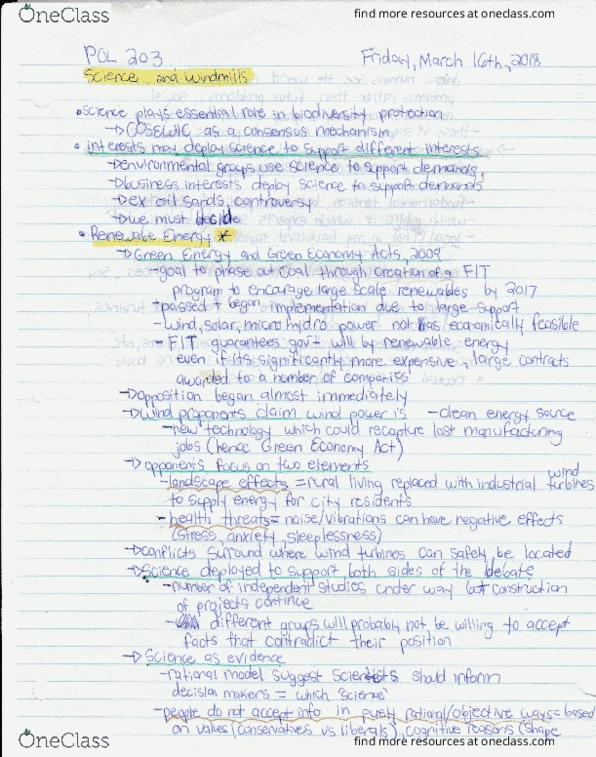 OneClass
find more resources at oneclass.com
POL 203
Friday, March 16th, 2018
Science and Windmills
• science plays essential role in biodiversity protection
→ COSEWIC as a consensus mechanism
• interests may deploy science to support different interests
→ environmental groups use science to support demands
→ business interests deploy science to support demands
→ ex oil sands controversy
→ we must decide
• Renewable Energy *
→ Green Energy and Green Economy Acts, 2009
- goal to phase out coal through creation of a FIT
program to encourage large scale renewables by 2017
- passed + began implementation due to large support
- wind, solar, micro hydro power not as economically feasible
- FIT guarantees gov't will by renewable energy
even if its significantly more expensive, large contracts
awarded to a number of companies
→ opposition began almost immediately
→ wind proponents claim wind power is - clean energy source
- new technology which could recapture lost manufacturing
jobs (hence Green Economy Act)
→ opponents focus on two elements
- landscape effects = rural living replaced with industrial wind turbines
to supply energy for city residents
- health threats = noise/vibrations can have negative effects
(stress, anxiety, sleeplessness)
→ conflicts surround where wind turbines can safely be located
→ Science deployed to support both sides of the debate
- number of independent studies under way but construction
of projects continue
- different groups will probably not be willing to accept
facts that contradict their position
→ Science as evidence
- rational model suggest scientists should inform
decision makers = which science
- people do not accept info in purely rational/objective ways = based
on values (conservatives vs liberals), cognitive reasons (shape
OneClass
find more resources at oneclass.com